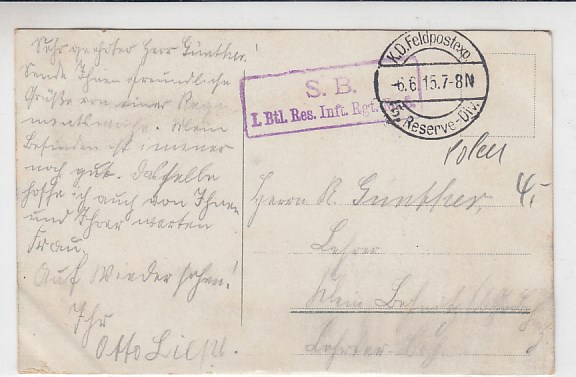 Sehr geehrter Herr Günther!
Sende Ihnen freundliche
Grüße von einer Regi
mentswache. Mein
Befinden ist immer
noch gut. Dasselbe
hoffe ich auch von Ihnen
und Ihrer werten
Frau.
Auf Wiedersehen!
Ihr
Otto
S. B.
I. Btl. Res. Inft. Rgt.
K.D. Feldpostexp.
-6.6.15.7-8N
Reserve-Div.
4.-
Herrn R. Günther,
Lehrer
Klein